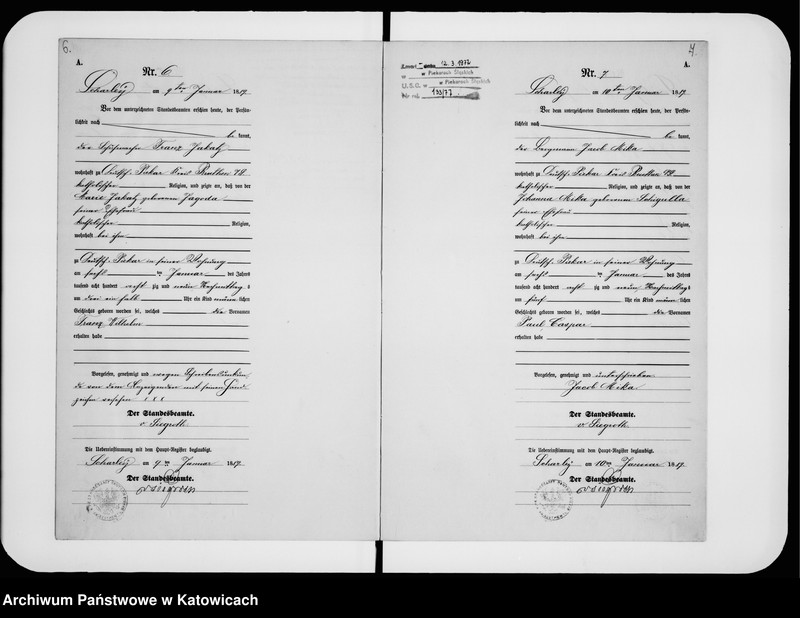 6.
A.
Nr. 6
Scharley am 9ten Januar 1889.
Vor dem unterzeichneten Standesbeamten erschien heute, der Persön-
lichkeit nach
be kannt,
der Schuhmacher Franz Jakatz
wohnhaft zu Deutsch Piekar Kreis Beuthen 78
katholischer Religion, und zeigte an, daß von der
Marie Jakatz geborenen Jagoda
seiner Ehefrau
katholischer Religion,
wohnhaft bei ihm
zu Deutsch Piekar in seiner Wohnung
am sechs ten Januar des Jahres
tausend acht hundert acht zig und neun Nachmittag s
um drei ein halb Uhr ein Kind männ lichen
Geschlechts geboren worden sei, welches die Vornamen
Franz Wilhelm
erhalten habe
Vorgelesen, genehmigt und wegen Schreibensunkun
de von dem Anzeigenden mit seinem Hand
zeichen versehen x x x
Der Standesbeamte.
v Siegroth
Die Uebereinstimmung mit dem Haupt-Register beglaubigt.
Scharley am 9ten Januar 1889.
Der Standesbeamte.
v Siegroth
7.
A.
12. 3. 1977
w Piekarach Śląskich
U.S.C. w w Piekarach Śląskich
133/77
Nr. 7
Scharley am 10ten Januar 1889.
Vor dem unterzeichneten Standesbeamten erschien heute, der Persön-
lichkeit nach
be kannt,
der Bergmann Jacob Mika
wohnhaft zu Deutsch Piekar Kreis Beuthen 48
katholischer Religion, und zeigte an, daß von der
Johanna Mika geborenen
seiner Ehefrau
katholischer Religion,
wohnhaft bei ihm
zu Deutsch Piekar in seiner Wohnung
am sechs ten Januar des Jahres
tausend acht hundert acht zig und neun Nachmittag s
um fünf Uhr ein Kind männ lichen
Geschlechts geboren worden sei, welches die Vornamen
Paul Caspar
erhalten habe
Vorgelesen, genehmigt und unterschrieben
Jacob Mika
Der Standesbeamte.
v Siegroth
Die Uebereinstimmung mit dem Haupt-Register beglaubigt.
Scharley am 10ten Januar 1889.
Der Standesbeamte.
v Siegroth
Archiwum Państwowe w Katowicach